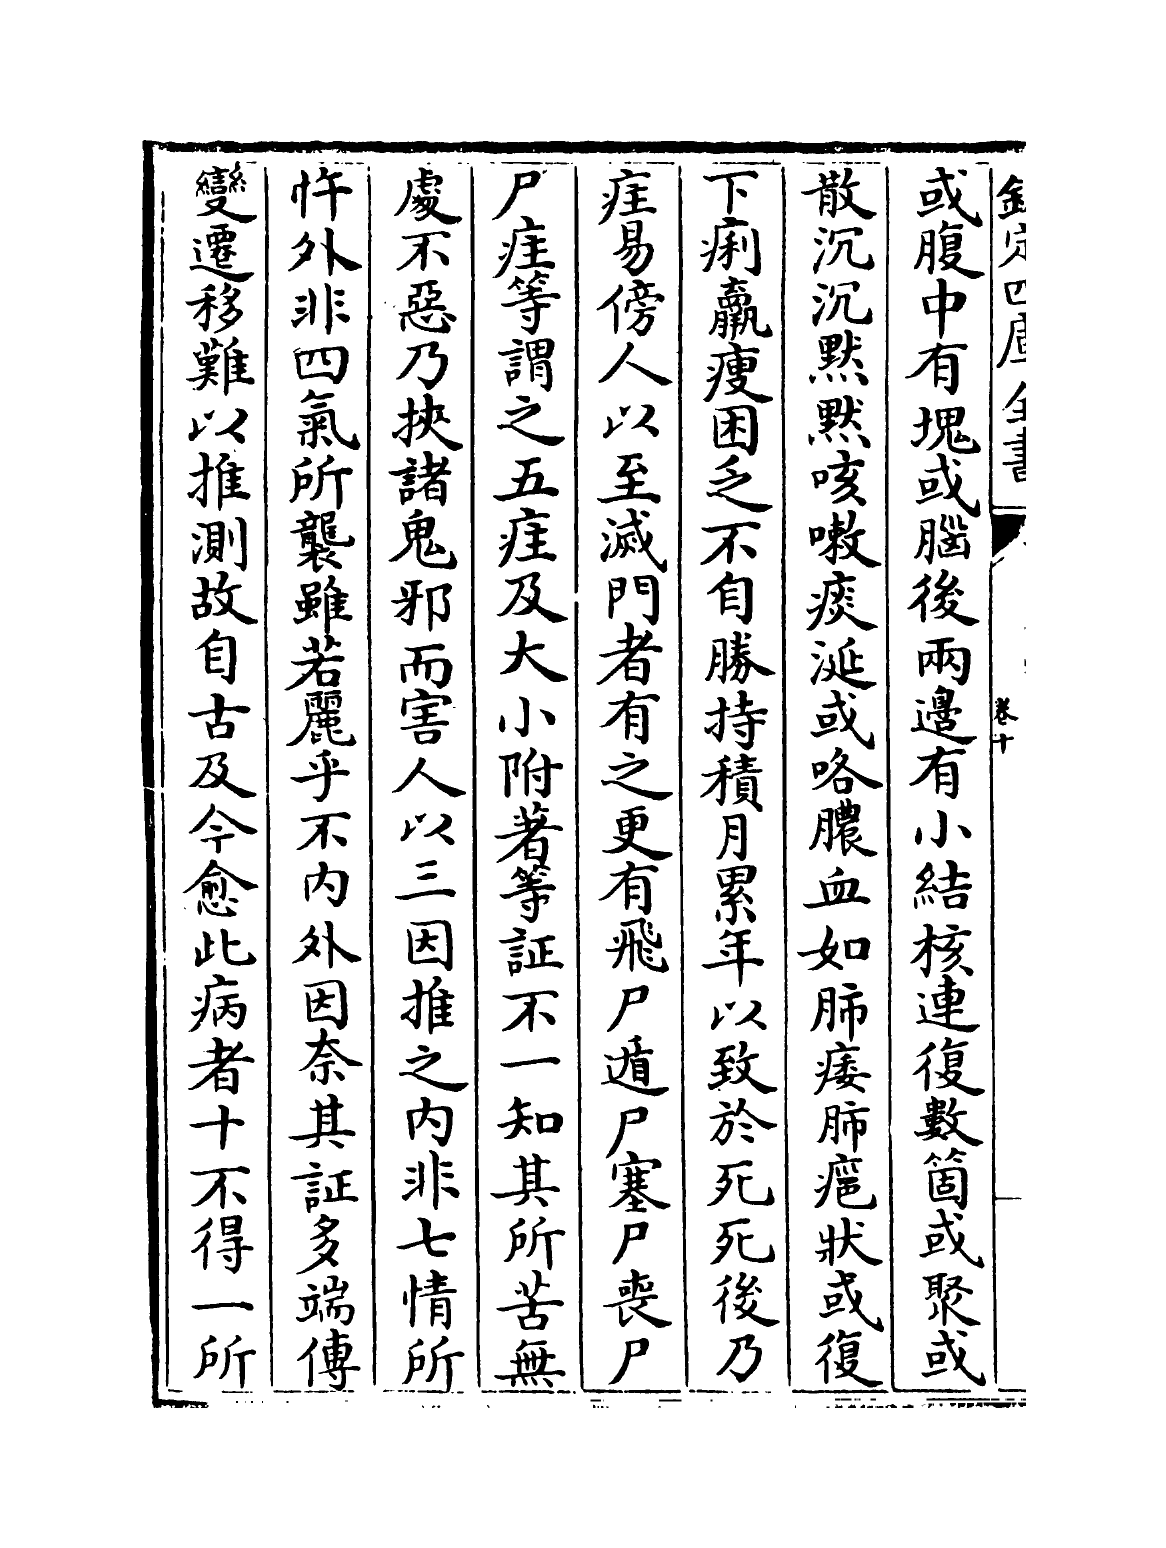 欽定四庫全書
卷十
或腹中有塊或腦後兩邊有小結核連復數箇或聚或
散沉沉默默咳嗽痰涎或咯膿血如肺痿肺瘡狀或復
下痢羸瘦困乏不自勝持積月累年以致於死死後乃
疰易傍人以至滅門者有之更有飛尸遁尸塞尸喪尸
尸疰等謂之五疰及大小附著等証不一知其所苦無
處不惡乃挾諸鬼邪而害人以三因推之内非七情所
忤外非四氣所襲雖若麗乎不内外因奈其証多端傳
變遷移難以推測故自古及今愈此病者十不得一所